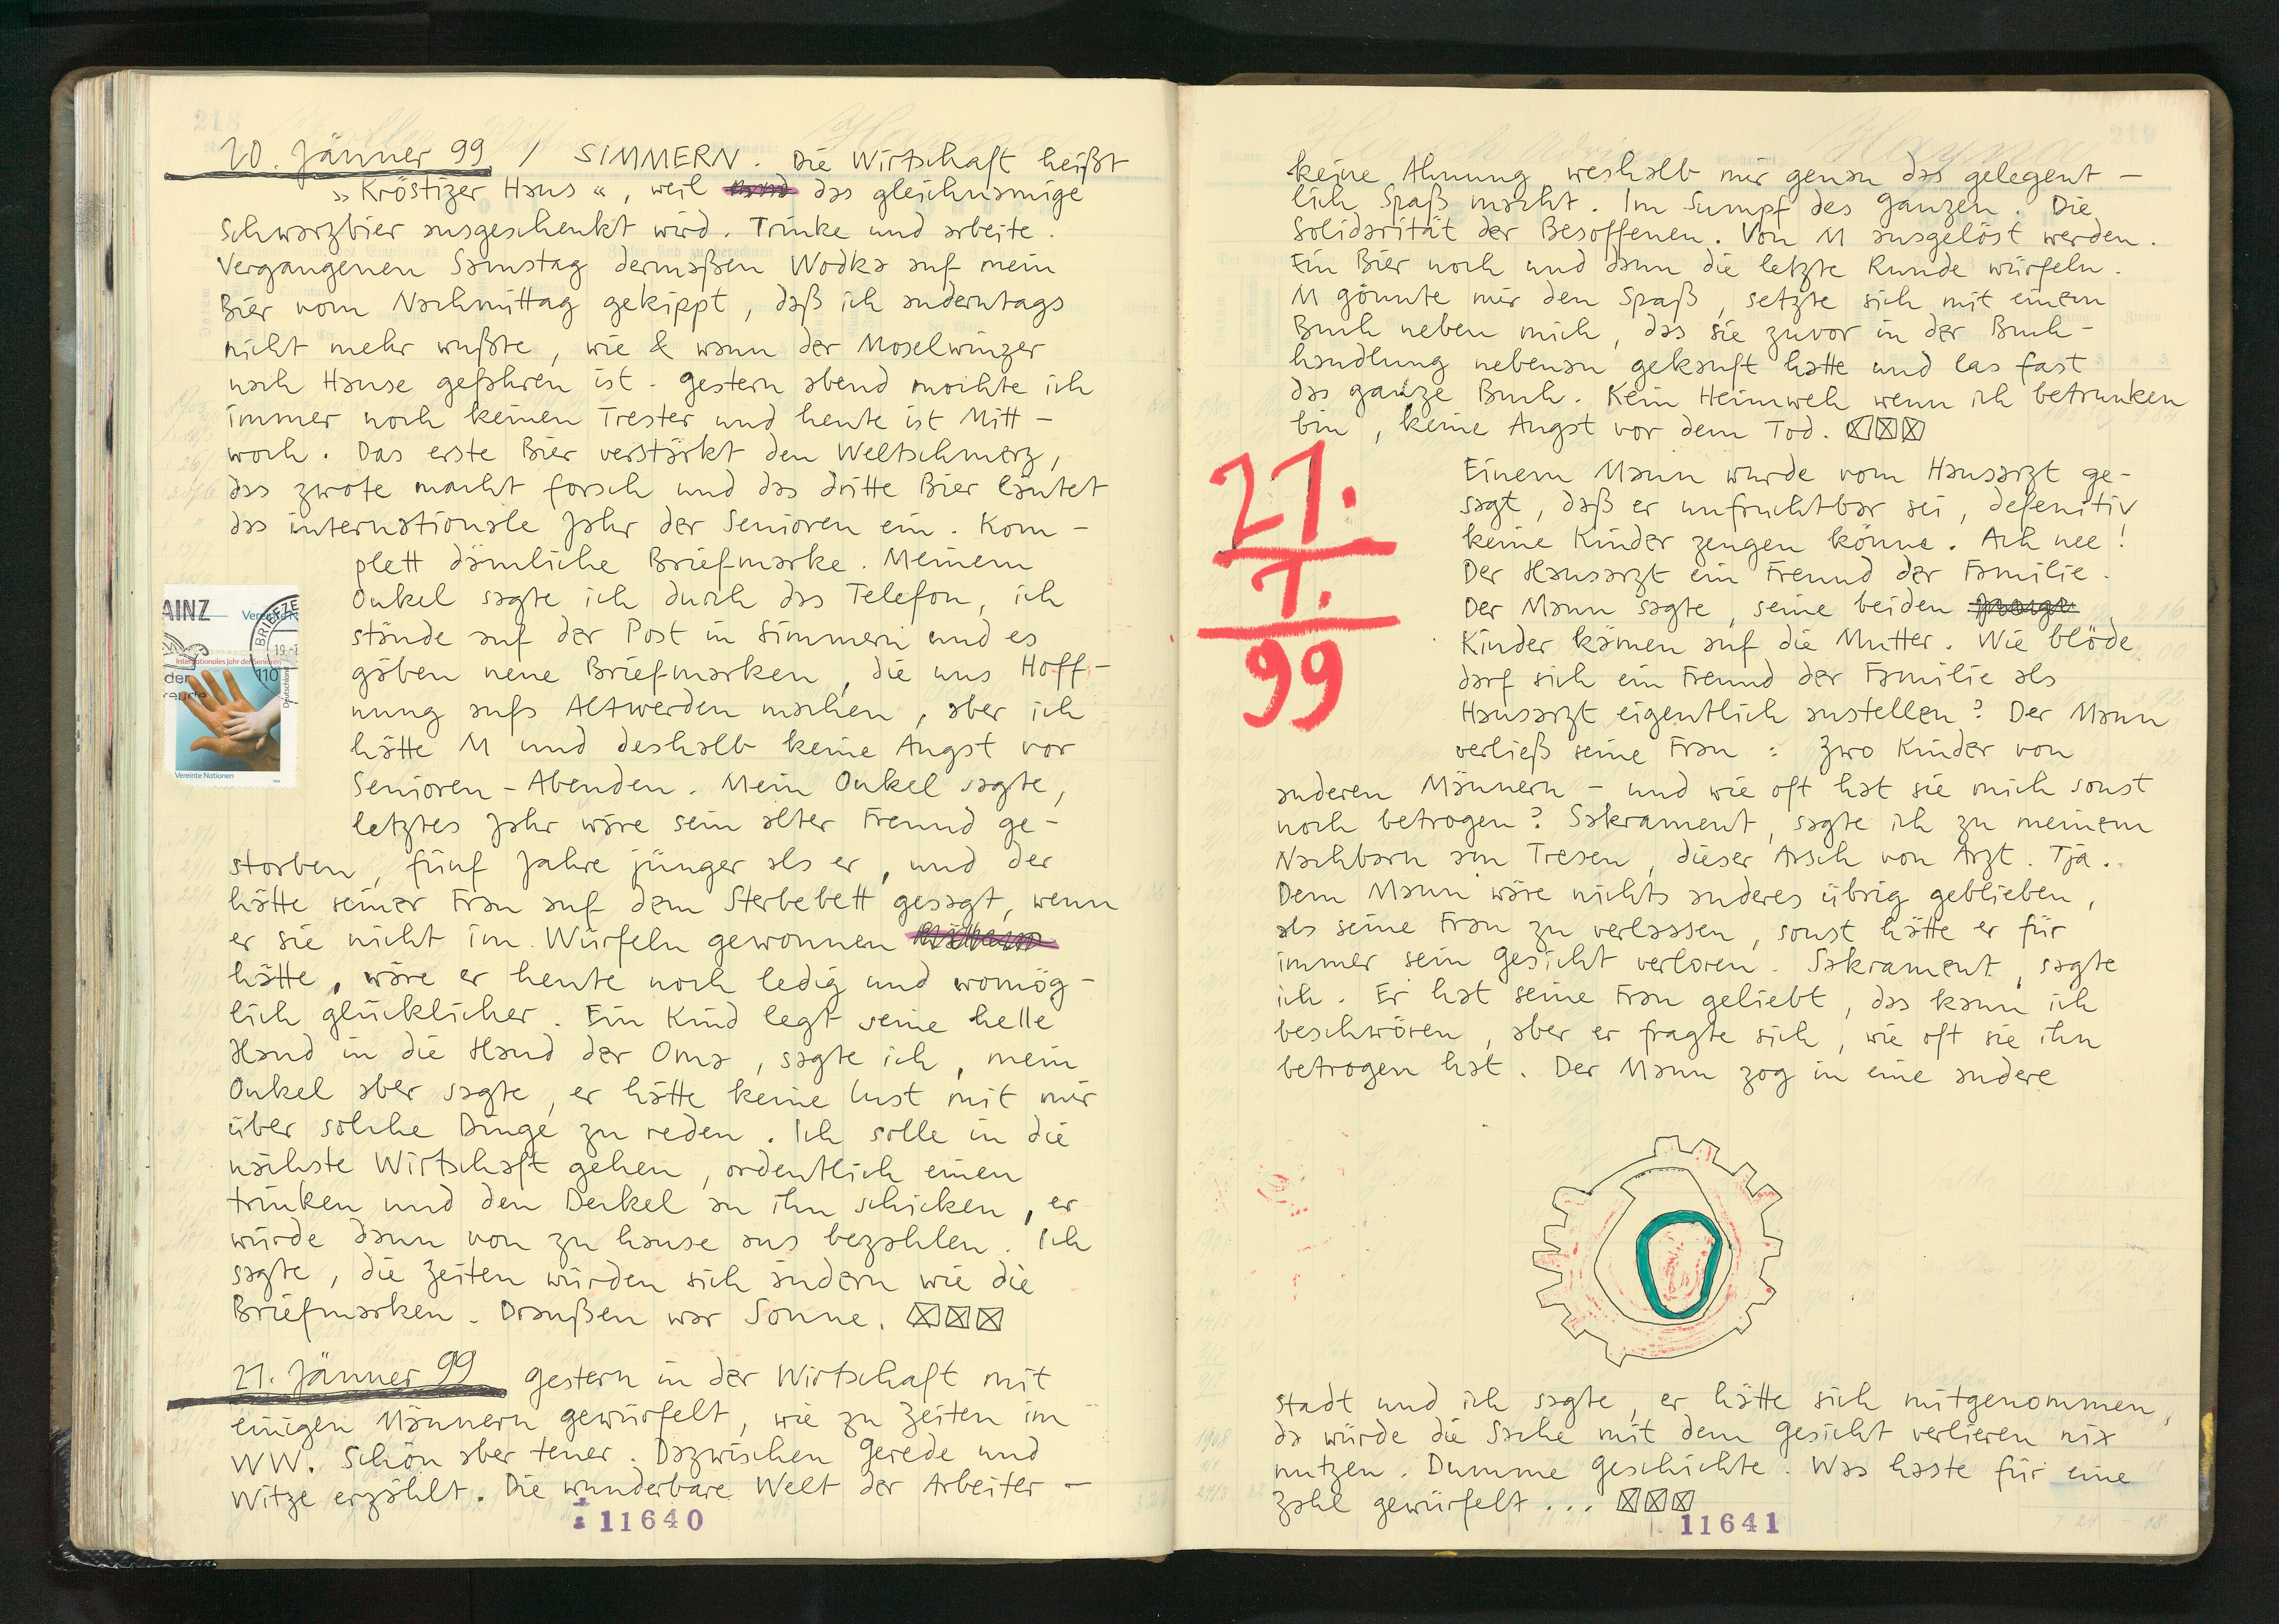 218
20. Jänner 99 / SIMMERN. Die Wirtschaft heißt
"Kröstizer Haus", weil das gleichnamige
Schwarzbier ausgeschenkt wird. Trinke und arbeite.
Vergangenen Samstag dermaßen Wodka auf mein
Bier vom Nachmittag gekippt, daß ich anderntags
nicht mehr wußte, wie & wann der Moselwinzer
nach Hause gefahren ist. Gestern abend mochte ich
immer noch keinen Trester und heute ist Mitt-
woch. Das erste Bier verstärkt den Weltschmerz,
das zwote macht forsch und das dritte Bier läutet
das internationale Jahr der Senioren ein. Kom-
plett dämliche Briefmarke. Meinem
Onkel sagte ich durch das Telefon, ich
stände auf der Post in Simmern und es
gäben neue Briefmarken, die uns Hoff-
nung aufs Altwerden machen, aber ich
hätte M und deshalb keine Angst vor
Senioren-Abenden. Mein Onkel sagte,
letztes Jahr wäre sein alter Freund ge-
storben, fünf Jahre jünger als er, und der
hätte seiner Frau auf dem Sterbebett gesagt, wenn
er sie nicht im Würfeln gewonnen
hätte, wäre er heute noch ledig und womög-
lich glücklicher. Ein Kind legt seine helle
Hand in die Hand der Oma, sagte ich, mein
Onkel aber sagte, er hätte keine Lust mit mir
über solche Dinge zu reden. Ich solle in die
nächste Wirtschaft gehen, ordentlich einen
trinken und den Deckel an ihn schicken, er
würde dann von zu hause aus bezahlen. Ich
sagte, die Zeiten würden sich ändern wie die
Briefmarken. Draußen war Sonne.
AINZ
BRIEFZE
19.-1
Internationales Jahr der Senioren
der
110
Deutschland
Vereinte Nationen
21. Jänner 99 Gestern in der Wirtschaft mit
einigen Männern gewürfelt, wie zu Zeiten im
WW. Schön aber teuer. Dazwischen Gerede und
Witze erzählt. Die wunderbare Welt der Arbeiter -
11640
219
keine Ahnung weshalb mir genau das gelegent-
lich Spaß macht. Im Sumpf des Ganzen. Die
Solidarität der Besoffenen. Von M ausgelöst werden.
Ein Bier noch und dann die letzte Runde würfeln.
M gönnte mir den Spaß, setzte sich mit einem
Buch neben mich, das sie zuvor in der Buch-
handlung nebenan gekauft hatte und las fast
das ganze Buch. Kein Heimweh wenn ich betrunken
bin, keine Angst vor dem Tod.
21.
1.
99
Einem Mann wurde vom Hausarzt ge-
sagt, daß er unfruchtbar sei, defenitiv
keine Kinder zeugen könne. Ach nee!
Der Hausarzt ein Freund der Familie.
Der Mann sagte, seine beiden
Kinder kämen auf die Mutter. Wie blöde
darf sich ein Freund der Familie als
Hausarzt eigentlich anstellen? Der Mann
verließ seine Frau: zwo Kinder von
anderen Männern - und wie oft hat sie mich sonst
noch betrogen? Sakrament, sagte ich zu meinem
Nachbarn am Tresen, dieser Arsch von Arzt. Tja.
Dem Mann wäre nichts anderes übrig geblieben,
als seine Frau zu verlassen, sonst hätte er für
immer sein Gesicht verloren. Sakrament, sagte
ich. Er hat seine Frau geliebt, das kann ich
beschwören, aber er fragte sich, wie oft sie ihn
betrogen hat. Der Mann zog in eine andere
Stadt und ich sagte, er hätte sich mitgenommen,
da würde die Sache mit dem Gesicht verlieren nix
nutzen. Dumme Geschichte. Was haste für eine
Zahl gewürfelt...
11641